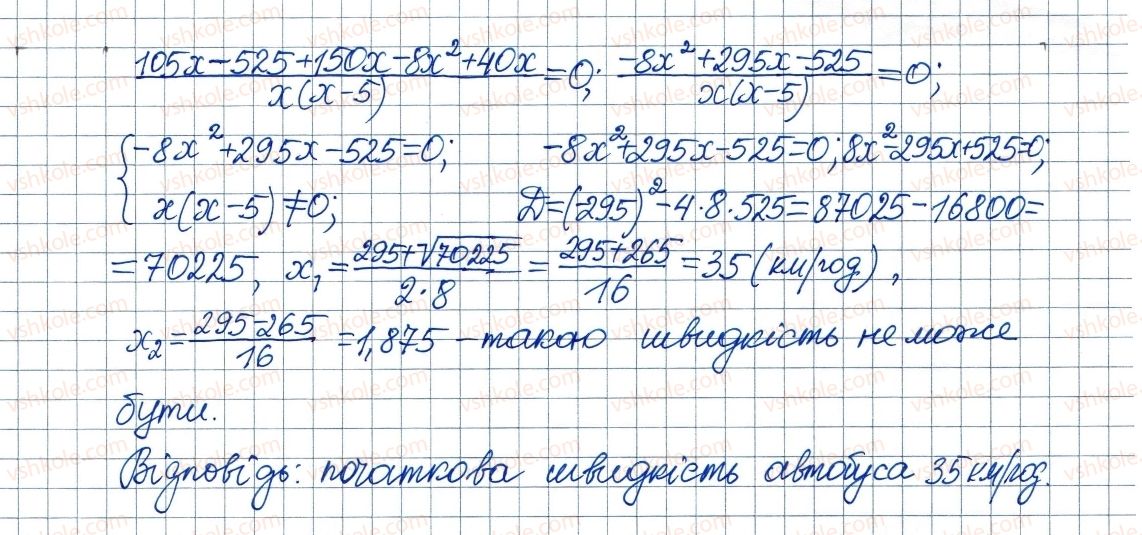 (105x-525+150x-8x²+40x)/(x(x-5))=0; (-8x²+295x-525)/(x(x-5))=0;
{-8x²+295x-525=0; -8x²+295x-525=0; 8x²-295x+525=0;
x(x-5)≠0; Д=(-295)²-4·8·525=87025-16800=
=70225, x₁=(295+√70225)/(2·8)=(295+265)/16=35 (км/год),
x₂=(295-265)/16=1,875 - такою швидкість не може
бути.
Відповідь: початкова швидкість автобуса 35 км/год.
vshkole.com